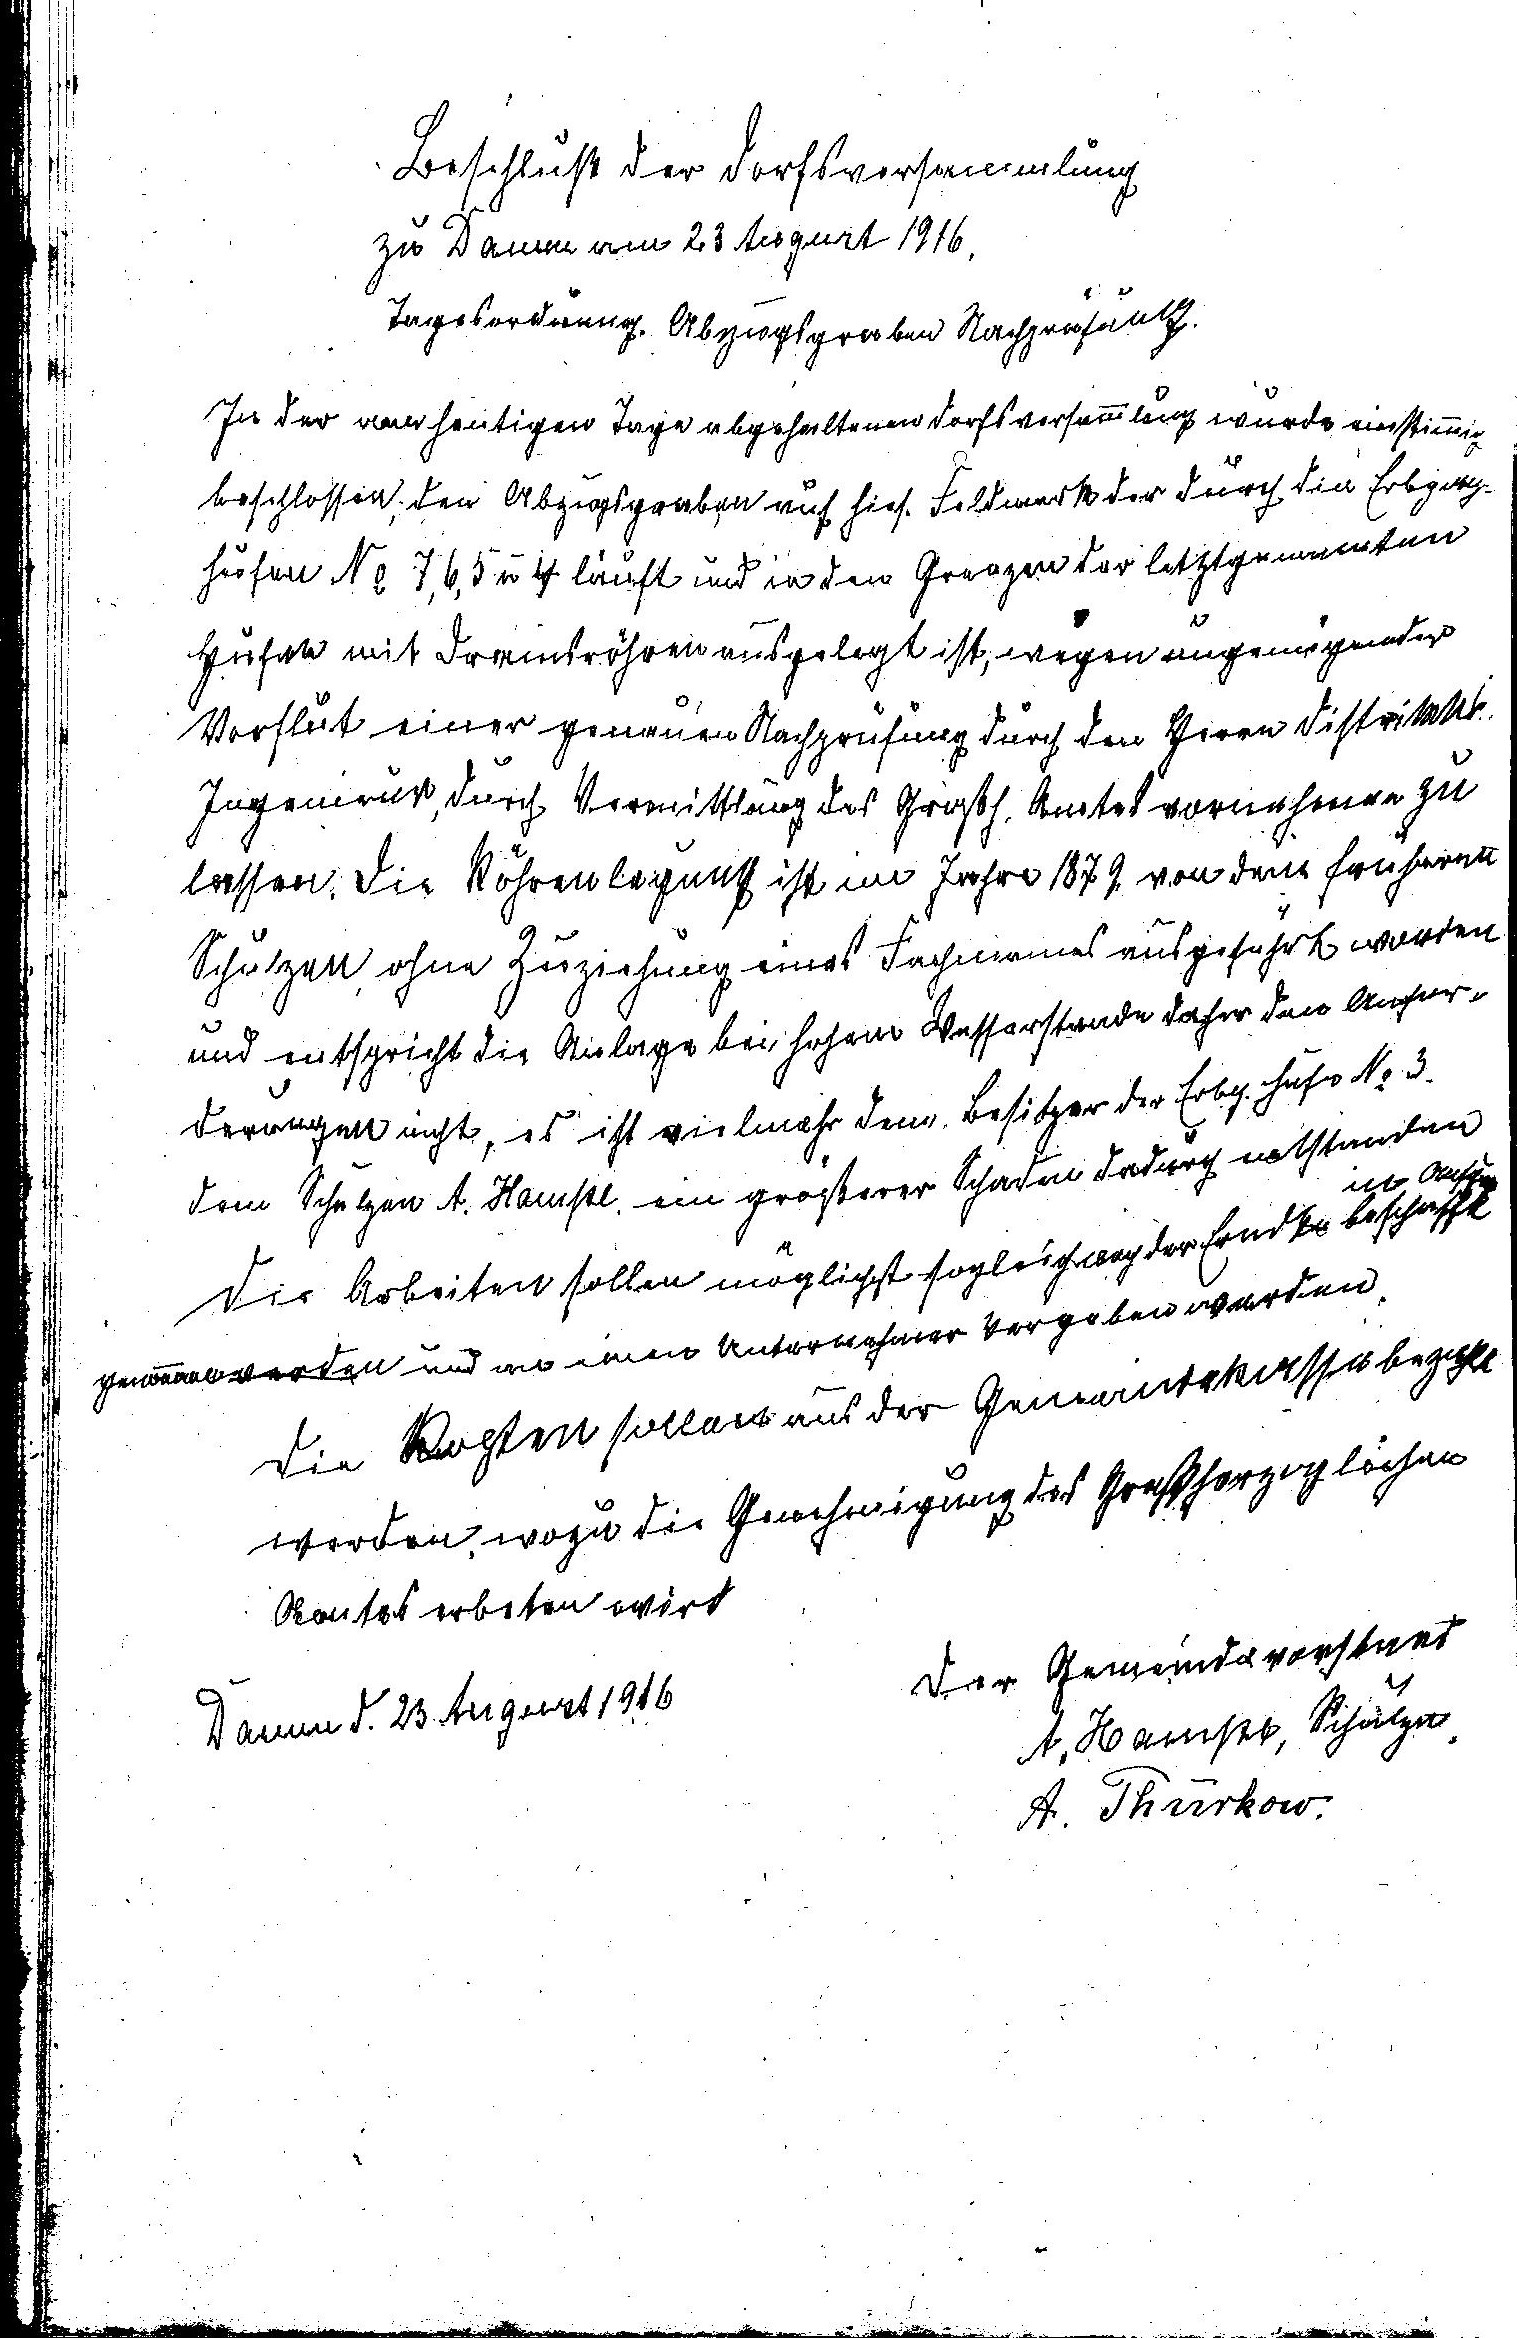 Beschluß der Dorfsversammlung
zu Damm am 23 August 1916.
Tagesordnung. Abzugsgraben Nachprüfung.
In der am heutigen Tage abgehaltenen Dorfsversam̅lung wurde einstim̅ig
beschlossen, den Abzugsgraben auf hies. Feldmark der durch die Erbpacht-
hufen No 7, 6, 5 u 4 läuft und in den Grenzen der letztgenannten
Hufen mit Drainsröhren ausgelegt ist, wegen ungenügender
Vorflut einer genauen Nachprüfung durch den Herrn Distrikts.
Ingenieur, durch Vermittlung des Großh. Amtes vornehmen zu
lassen. Die Röhrenlegung ist im Jahre 1879 von dem früheren
Schulzen, ohne Zuziehung eines Fachmanes ausgeführt worden
und entspricht die Anlage bei hohem Wasserstande daher den Anfor-
derungen nicht, es ist vielmehr dem Besitzer der Erbp. Hufe No 3.
dem Schulzen A. Hamstl. ein größerer Schaden dadurch entstanden
in Angriff
Die Arbeiten sollen möglichst sogleich nach der Erndte beschafft
genom̅en werden und an einen Unternehmer vergeben werden.
Die Kosten sollen aus der Gemeindekasse bezahlt
werden, wozu die Genehmigung des Großherzoglichen
Amtes erbeten wird
Damm d. 23. August 1916
Der Gemeindevorstand
A. Schulze.
A. Thürkow.